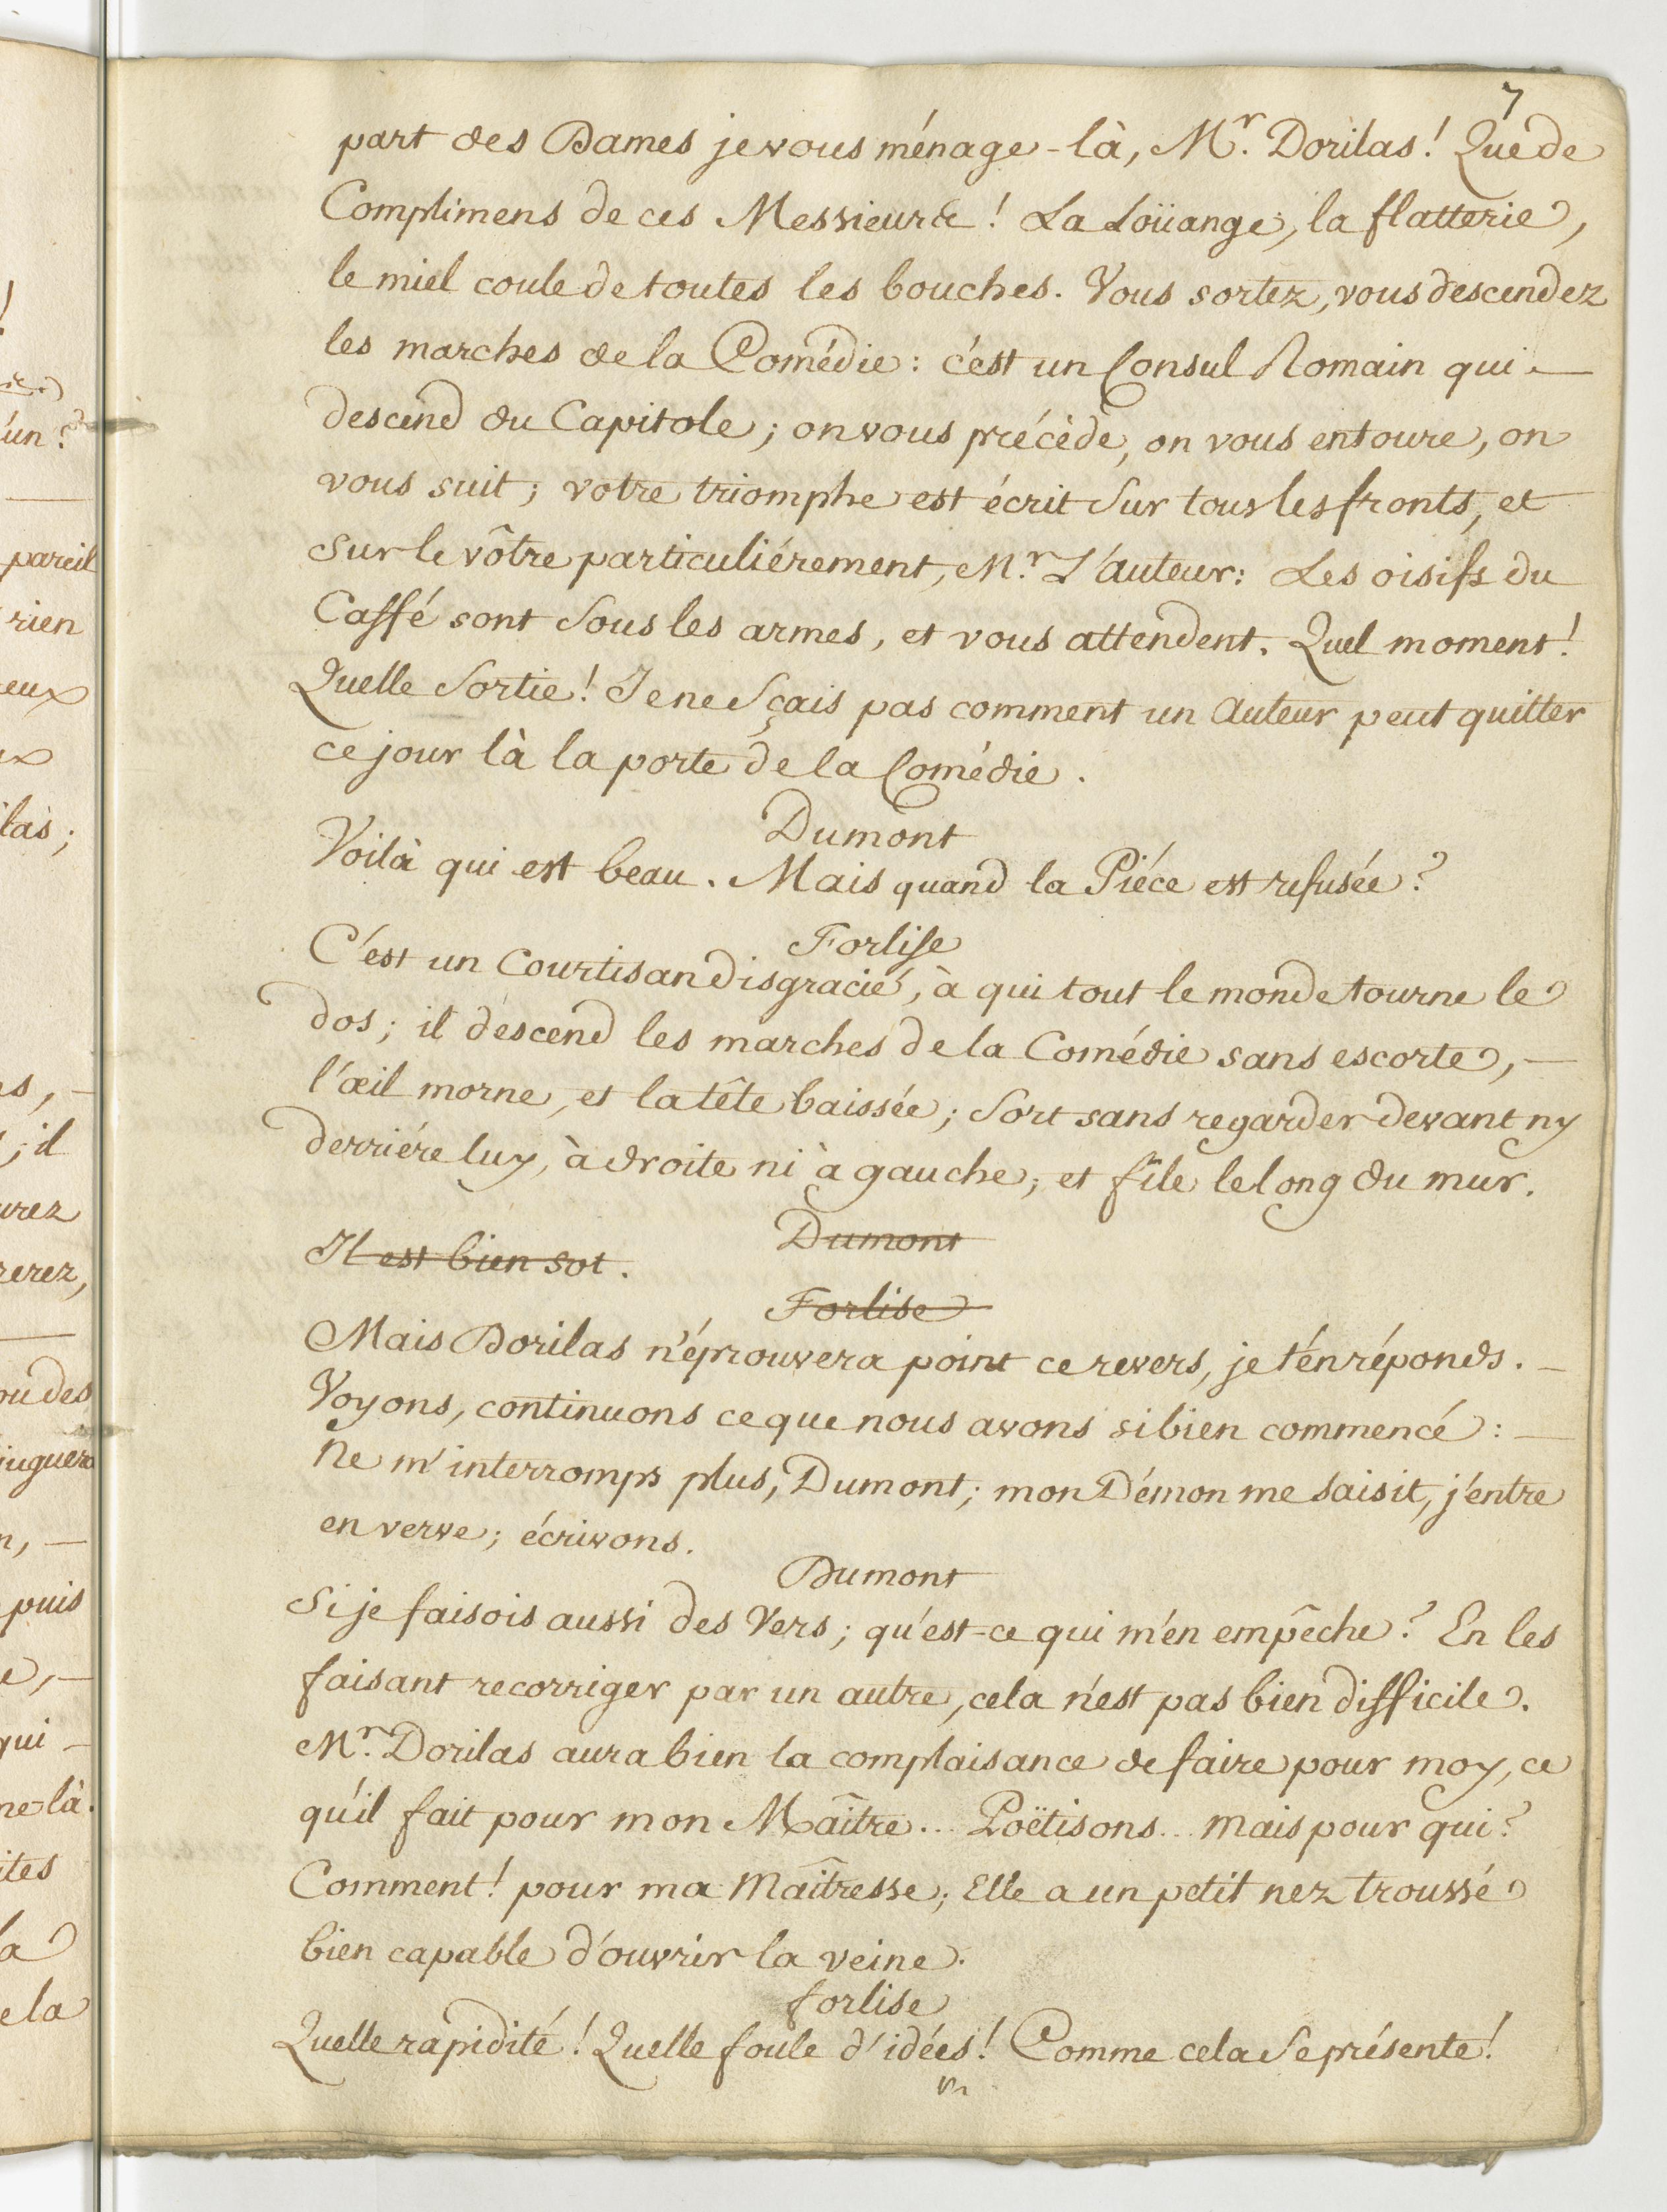 7
part des Dames je vous ménage-là, Mr. Dorilas! Que de
Complimens de ces Messieurs! La Loüange, la flatterie,
le miel coule de toutes les bouches. Vous sortez, vous descendez
les marches de la Comédie: c'est un Consul Romain qui
descend du Capitole; on vous précède, on vous entoure, on
vous suit; votre triomphe est écrit sur tous les fronts, et
sur le vôtre particuliérement, Mr. L'auteur: Les oisifs du
Caffé sont sous les armes, et vous attendent. Quel moment!
Quelle sortie! Je ne sçais pas comment un Auteur peut quitter
ce jour là la porte de la Comédie.
Dumont
Voilà qui est beau. Mais quand la Piéce est refusée?
Forlise
C'est un Courtisan disgracié, à qui tout le monde tourne le
dos; il descend les marches de la Comédie sans escorte, —
l'œil morne, et la tête baissée; sort sans regarder devant ny
derriére luy, à droite ni à gauche; et file le long du mur.
Dumont
Il est bien sot.
Forlise
Mais Dorilas n'éprouvera point ce revers, je t'en réponds. —
Voyons, continuons ce que nous avons si bien commencé: —
Ne m'interromps plus, Dumont; mon Démon me saisit, j'entre
en verve; écrivons.
Dumont
Si je faisois aussi des Vers; qu'est-ce qui m'en empêche? En les
faisant recorriger par un autre, cela n'est pas bien difficile.
Mr. Dorilas aura bien la complaisance de faire pour moy, ce
qu'il fait pour mon Maître... Poëtisons... Mais pour qui?
Comment! pour ma Maîtresse; Elle a un petit nez troussé
bien capable d'ouvrir la veine.
forlise
Quelle rapidité! Quelle foule d'idées! Comme cela se présente!